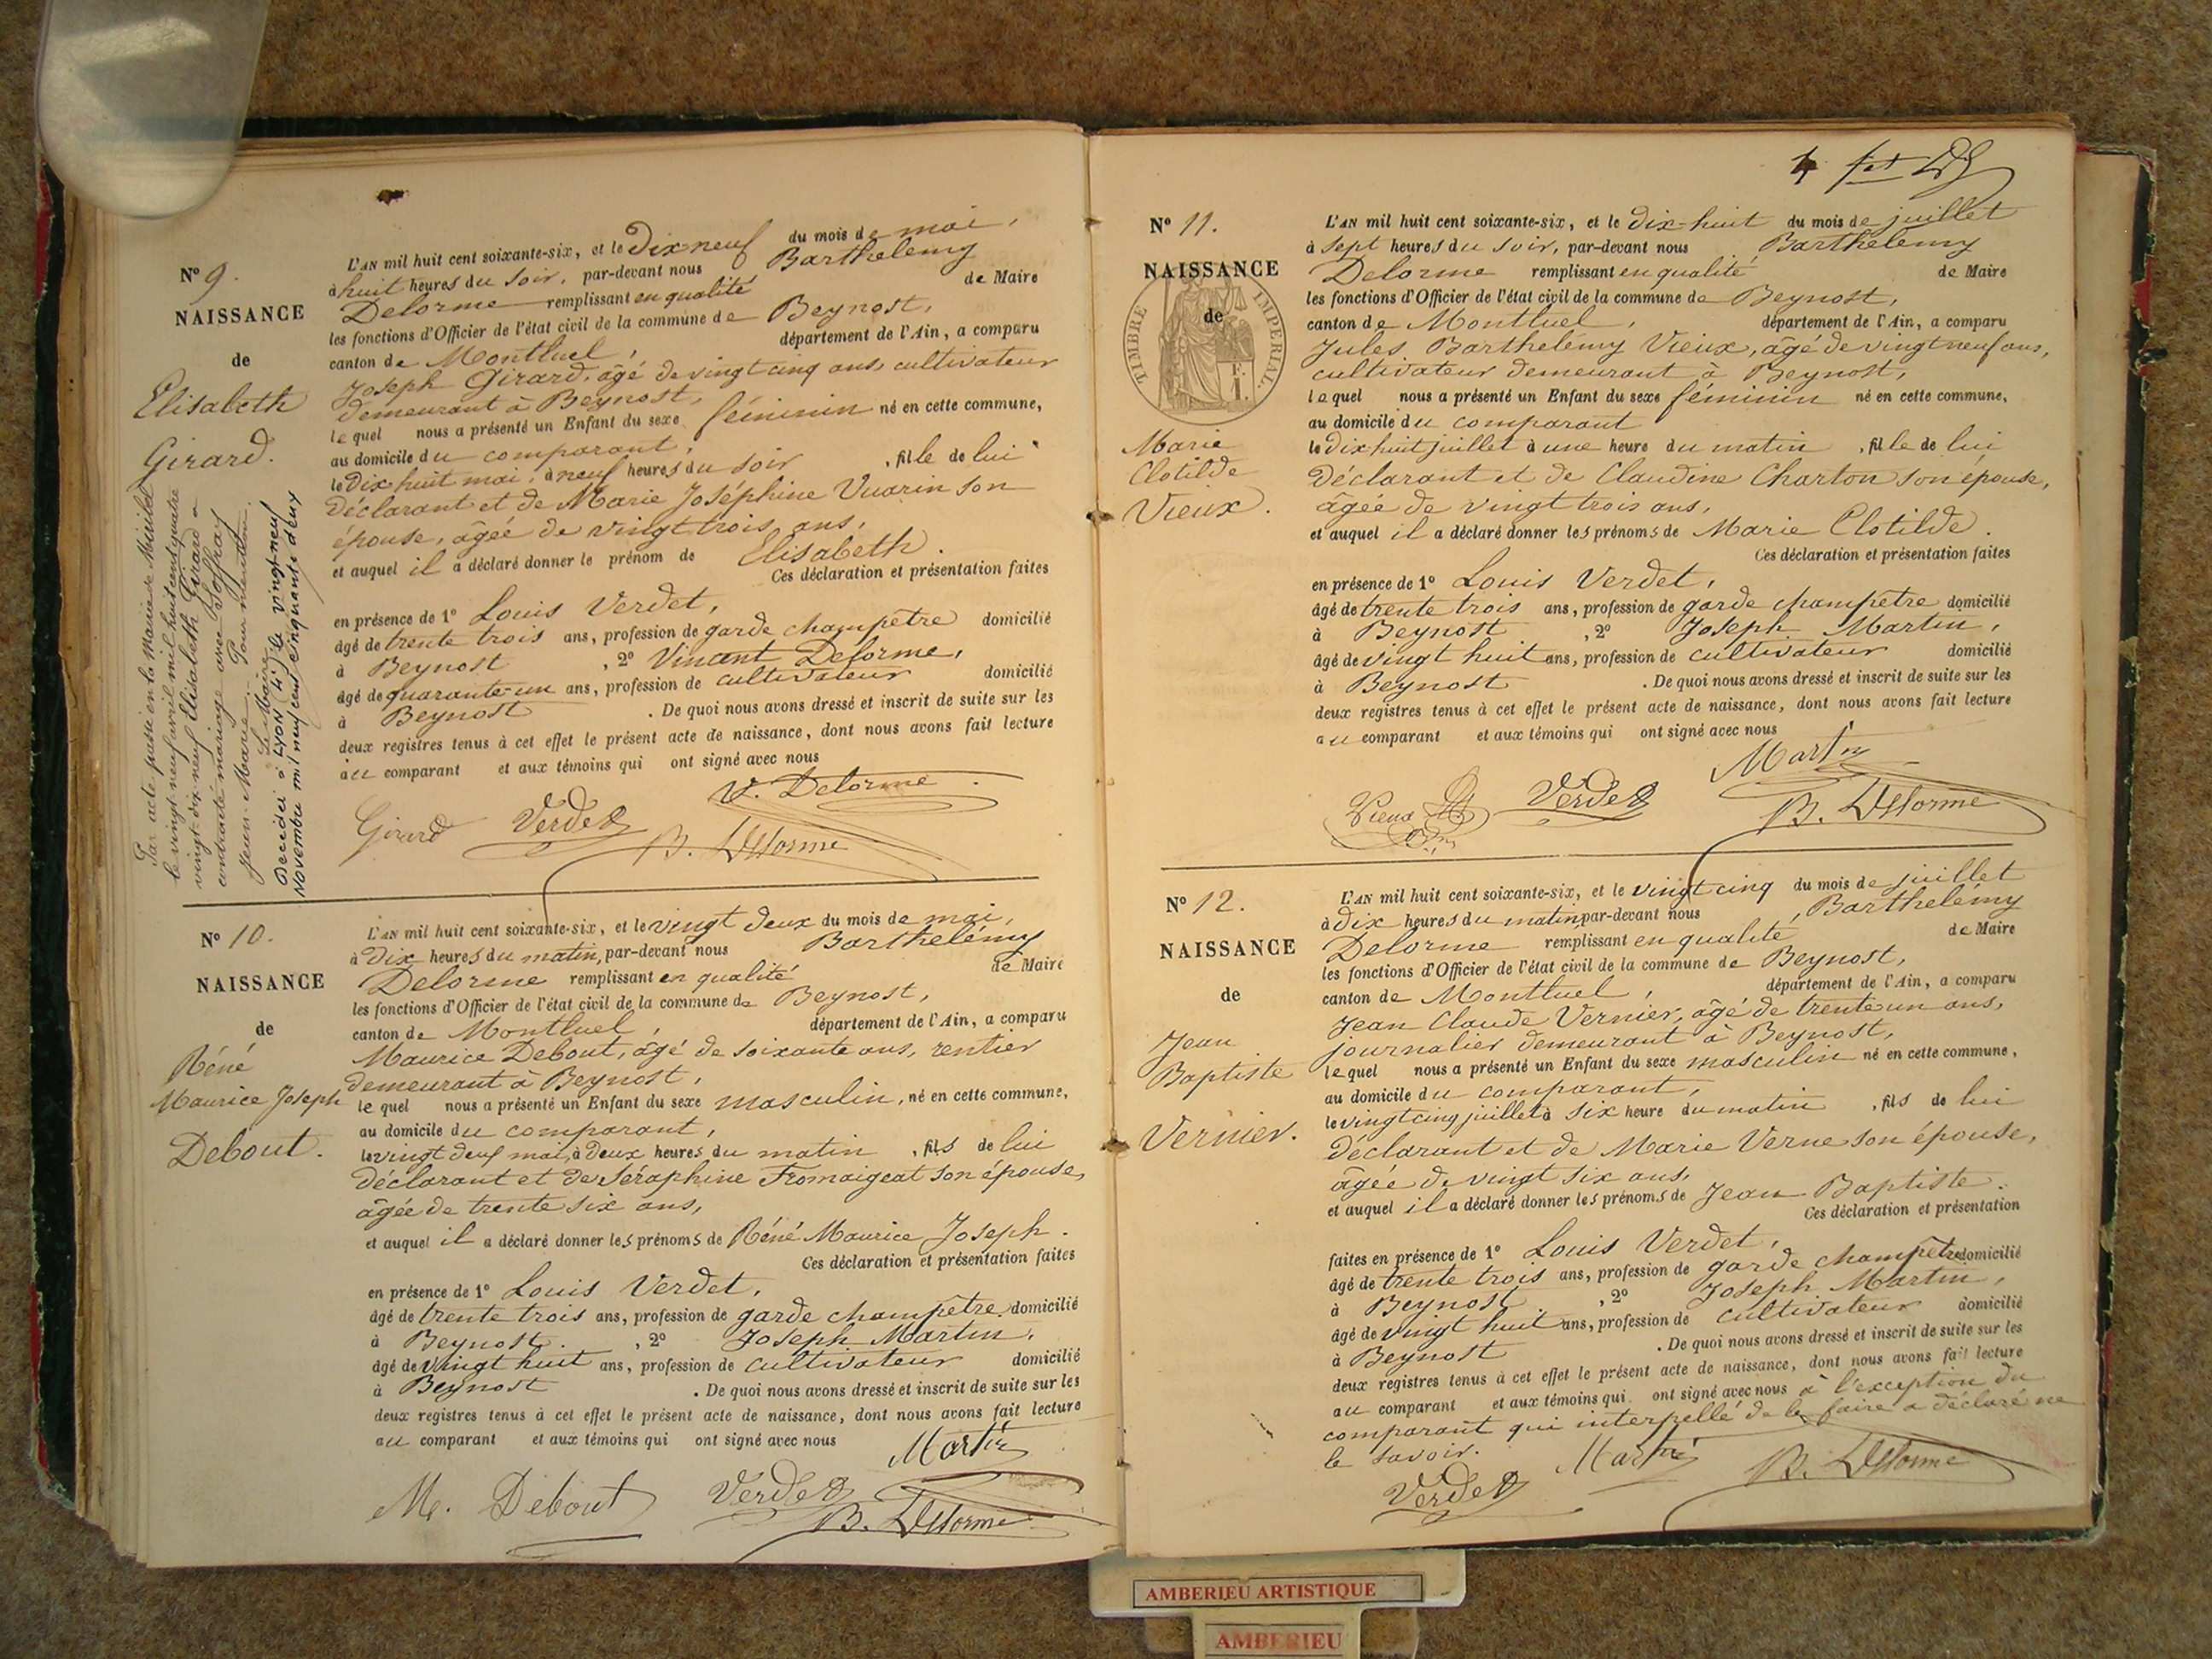 N° 9.
NAISSANCE
de
Elisabeth
Girard.
L'AN mil huit cent soixante-six, et le Dix neuf du mois de mai,
à huit heures du soir, par-devant nous Barthelemy
Delorme remplissant en qualité de Maire
les fonctions d'Officier de l'état civil de la commune de Beynost,
canton de Montluel, département de l'Ain, a comparu
Joseph Girard, âgé de vingt cinq ans, cultivateur
demeurant à Beynost,
lequel nous a présenté un Enfant du sexe féminin né en cette commune,
au domicile du comparant,
le Dix huit mai, à neuf heures du soir, fille de lui
Déclarant et de Marie Joséphine Vuarin son
épouse, âgée de vingt trois ans,
et auquel il a déclaré donner le prénom de Elisabeth.
Ces déclaration et présentation faites
en présence de 1° Louis Verdet,
âgé de trente trois ans, profession de garde champêtre domicilié
à Beynost, 2° Vincent Delorme,
âgé de quarante-un ans, profession de cultivateur domicilié
à Beynost. De quoi nous avons dressé et inscrit de suite sur les
deux registres tenus à cet effet le présent acte de naissance, dont nous avons fait lecture
au comparant et aux témoins qui ont signé avec nous
V. Delorme
Girard Verdet
B. Delorme
Par acte passé en la Mairie de
le vingt neuf avril mil huit cent quatre
vingt-dix-neuf Elisabeth Girard a
contracté mariage avec Joffray
Jean-Marie. Pour mention.
Le Maire
Décédée à LYON (4e) le vingt-neuf
Novembre mil neuf cent cinquante deux
N° 10.
NAISSANCE
de
Réné
Maurice Joseph
Debout.
L'AN mil huit cent soixante-six, et le vingt deux du mois de mai,
à Dix heures du matin, par-devant nous Barthelémy
Delorme remplissant en qualité de Maire
les fonctions d'Officier de l'état civil de la commune de Beynost,
canton de Montluel, département de l'Ain, a comparu
Maurice Debout, âgé de soixante ans, rentier
demeurant à Beynost,
lequel nous a présenté un Enfant du sexe masculin, né en cette commune,
au domicile du comparant,
le vingt deux mai, à deux heures du matin, fils de lui
Déclarant et de Séraphine Fromaigeat son épouse,
âgée de trente six ans,
et auquel il a déclaré donner les prénoms de Réné Maurice Joseph.
Ces déclaration et présentation faites
en présence de 1° Louis Verdet,
âgé de trente trois ans, profession de garde champêtre domicilié
à Beynost, 2° Joseph Martin,
âgé de vingt huit ans, profession de cultivateur domicilié
à Beynost. De quoi nous avons dressé et inscrit de suite sur les
deux registres tenus à cet effet le présent acte de naissance, dont nous avons fait lecture
au comparant et aux témoins qui ont signé avec nous
Martin
M. Debout Verdet
B. Delorme
4
N° 11.
NAISSANCE
de
TIMBRE IMPERIAL.
Marie
Clotilde
Vieux.
L'AN mil huit cent soixante-six, et le Dix-huit du mois de juillet
à sept heures du soir, par-devant nous Barthelemy
Delorme remplissant en qualité de Maire
les fonctions d'Officier de l'état civil de la commune de Beynost,
canton de Montluel, département de l'Ain, a comparu
Jules Barthelemy Vieux, âgé de vingt neuf ans,
cultivateur demeurant à Beynost,
lequel nous a présenté un Enfant du sexe féminin né en cette commune,
au domicile du comparant
le dix huit juillet à une heure du matin, fille de lui
Déclarant et de Claudine Charton son épouse,
âgée de vingt trois ans,
et auquel il a déclaré donner les prénoms de Marie Clotilde.
Ces déclaration et présentation faites
en présence de 1° Louis Verdet,
âgé de trente trois ans, profession de garde champêtre domicilié
à Beynost, 2° Joseph Martin,
âgé de vingt huit ans, profession de cultivateur domicilié
à Beynost. De quoi nous avons dressé et inscrit de suite sur les
deux registres tenus à cet effet le présent acte de naissance, dont nous avons fait lecture
au comparant et aux témoins qui ont signé avec nous
Martin
Vieux Verdet
B. Delorme
N° 12.
NAISSANCE
de
Jean
Baptiste
Vernier.
L'AN mil huit cent soixante-six, et le vingt cinq du mois de juillet
à dix heures du matin, par-devant nous, Barthelémy
Delorme remplissant en qualité de Maire
les fonctions d'Officier de l'état civil de la commune de Beynost,
canton de Montluel, département de l'Ain, a comparu
Jean Claude Vernier, âgé de trente un ans,
journalier demeurant à Beynost,
lequel nous a présenté un Enfant du sexe masculin né en cette commune,
au domicile du comparant,
le vingt cinq juillet à six heure du matin, fils de lui
Déclarant et de Marie Verne son épouse,
âgée de vingt six ans,
et auquel il a déclaré donner les prénoms de Jean Baptiste.
Ces déclaration et présentation
faites en présence de 1° Louis Verdet,
âgé de trente trois ans, profession de garde champêtre domicilié
à Beynost, 2° Joseph Martin,
âgé de vingt huit ans, profession de cultivateur domicilié
à Beynost. De quoi nous avons dressé et inscrit de suite sur les
deux registres tenus à cet effet le présent acte de naissance, dont nous avons fait lecture
au comparant et aux témoins qui ont signé avec nous à l'exception du
comparant qui interpellé de le faire a déclaré ne
le savoir.
Verdet Martin B. Delorme
AMBERIEU ARTISTIQUE
AMBERIEU